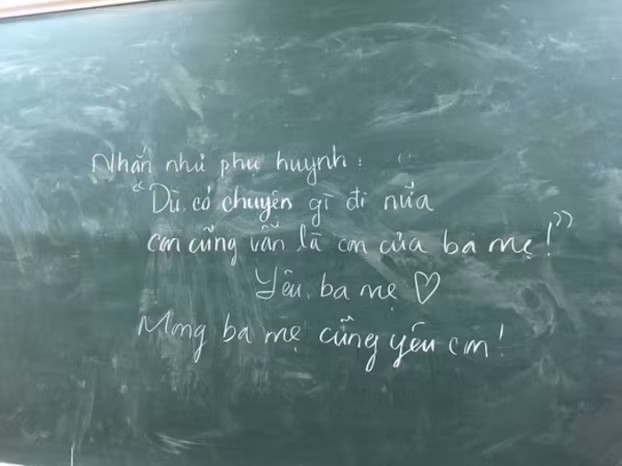 Nhắn nhủ phụ huynh:
"Dù có chuyện gì đi nữa
con cũng vẫn là con của ba mẹ!"
Yêu ba mẹ ♡
Mong ba mẹ cũng yêu con!